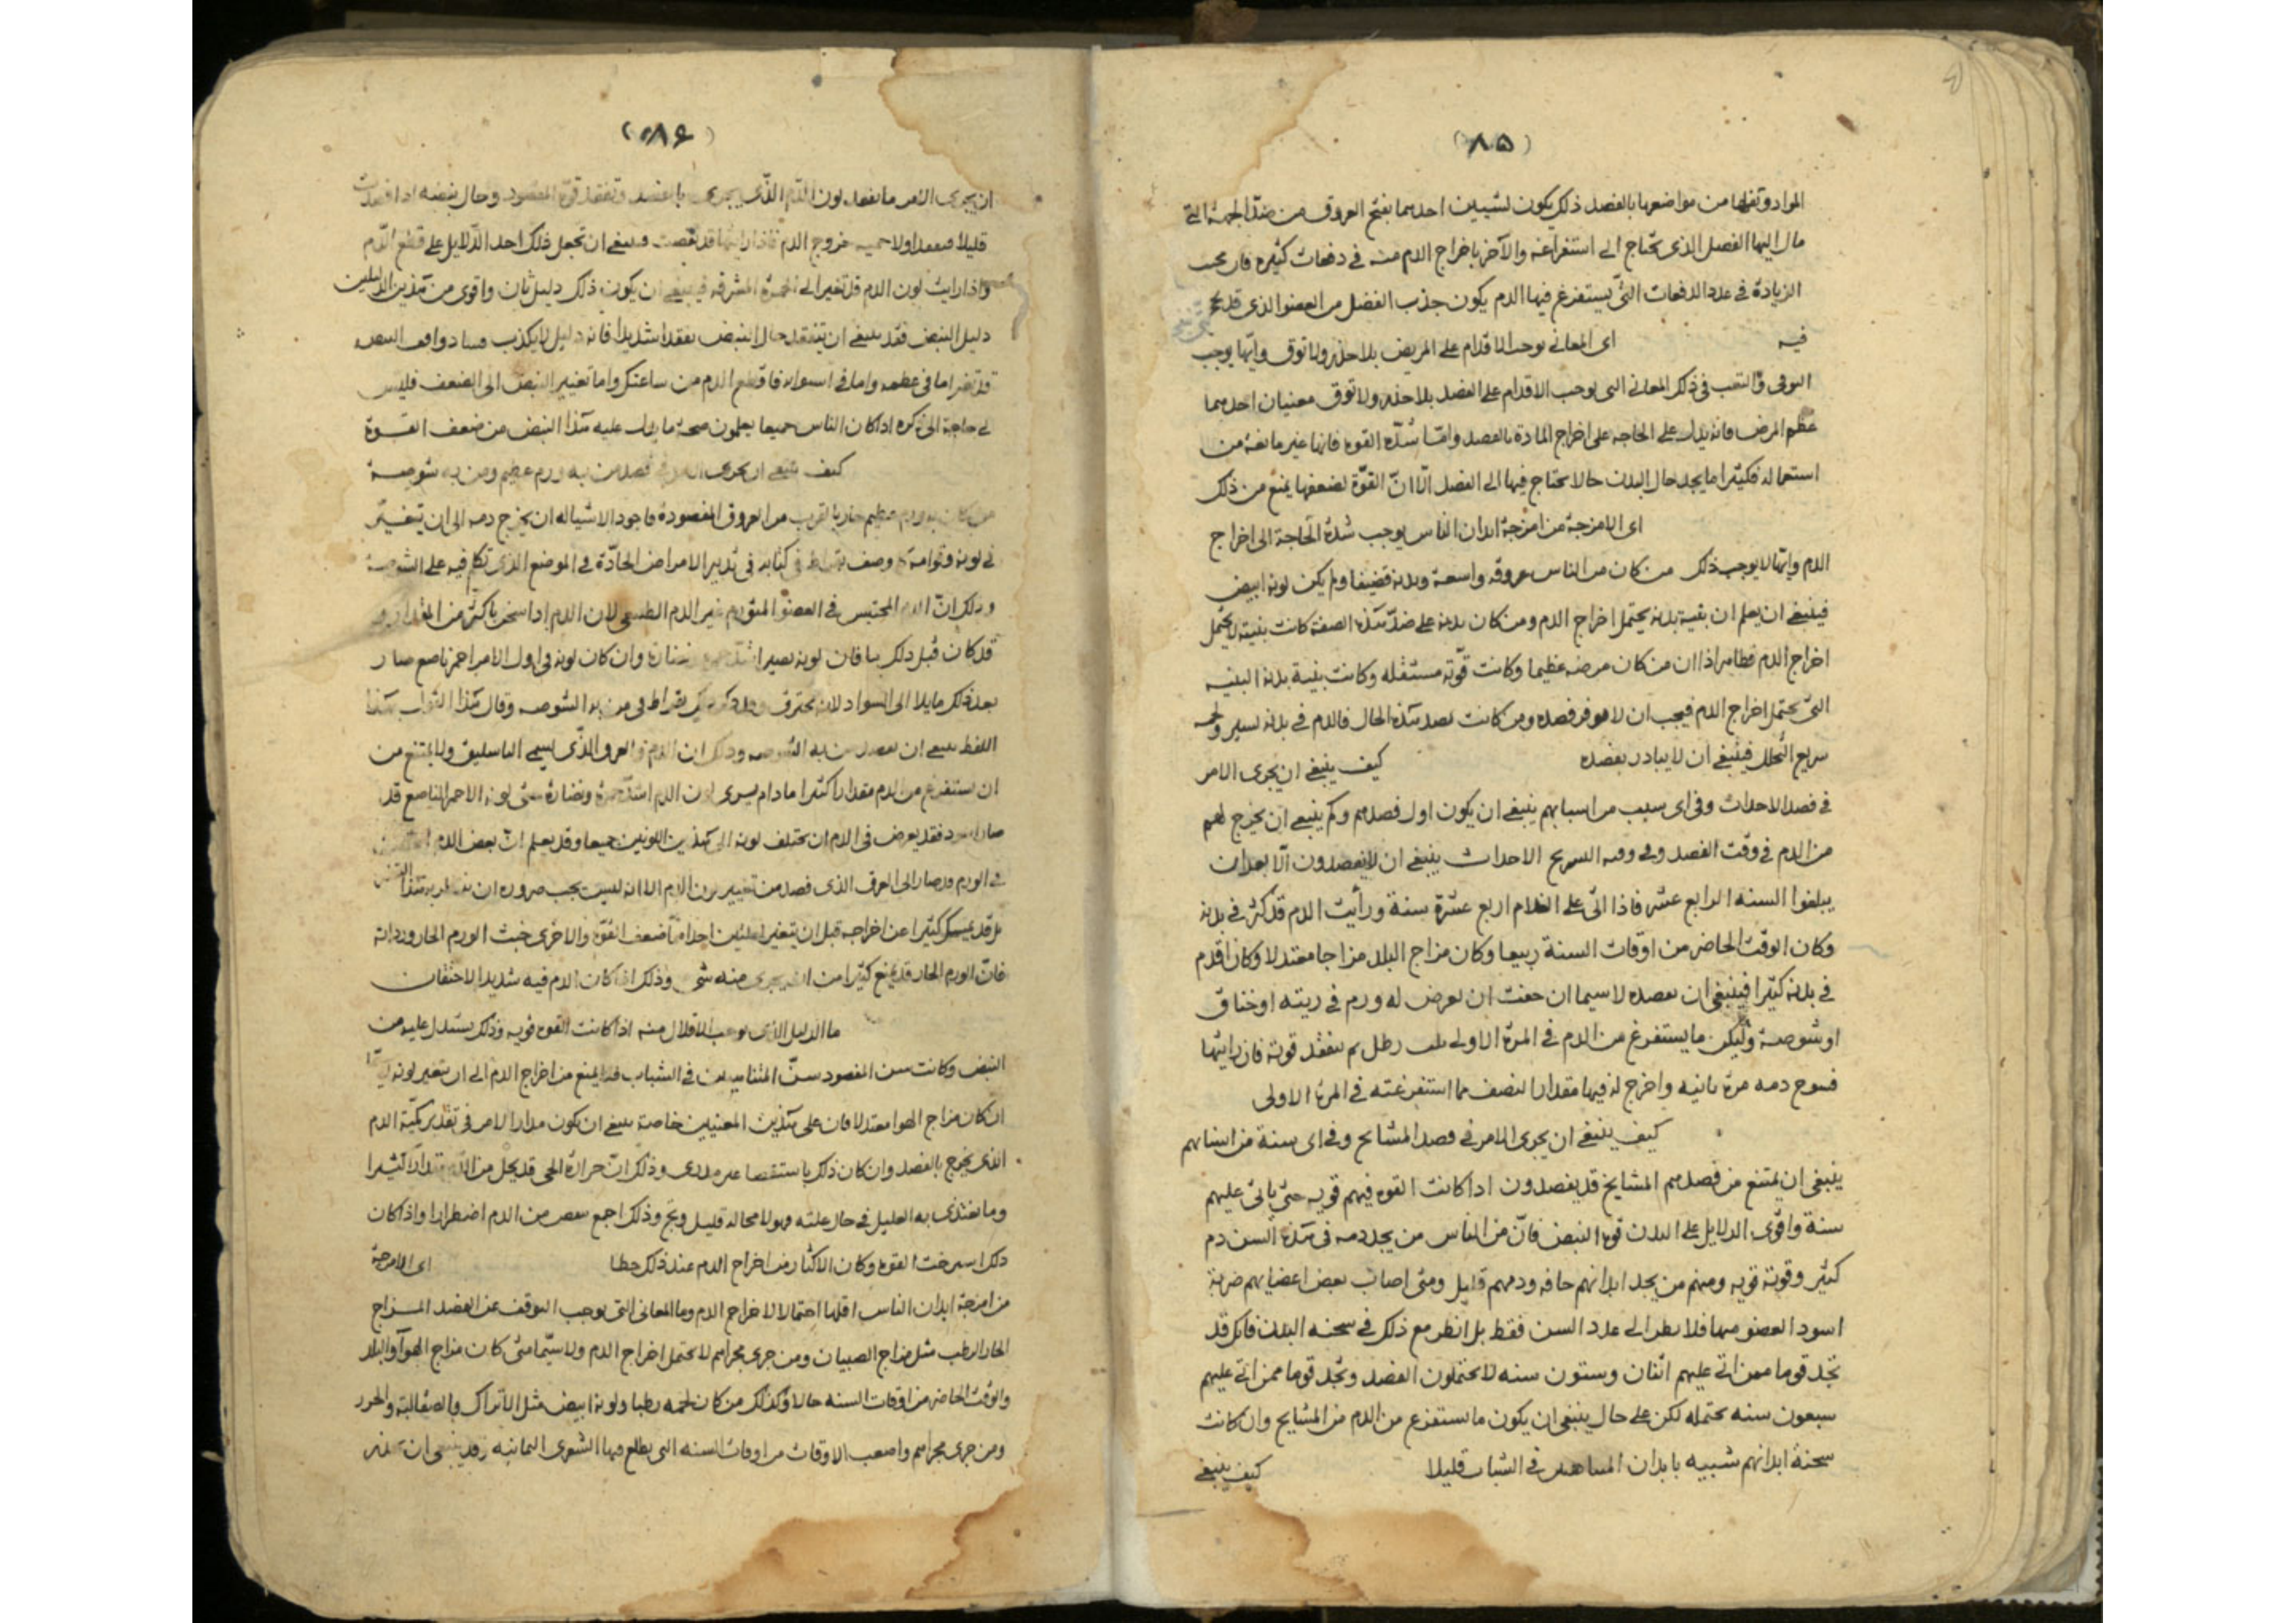 (٨٥)
المواد وتفرلها من مواضعها بالفصد ذلك يكون لشيين احدهما بفتح العروق من ضد الجهة التي
مال اليها الفصل الذي يحتاج الى استفراغه والآخر باخراج الدم منه في دفعات كثيره فان بحسب
الزيادة في عدد الدفعات التي يستفرغ فيها الدم يكون جذب الفضل من العضو الذي قد
فيه اى المعاني يوجب الاقدام على المريض بلا حذر ولا توق وايها يوجب
التوقى في ذلك المعاني التى يوجب الاقدام على الفصد بلا حذر ولا توق معنيان احدهما
عظم المرض فانه يدل على الحاجه على اخراج المادة بالفصد واما شدة القوه فانها غير مانعة من
استعماله فكثيرا ما يجد حال البدن حالا يحتاج فيها الى الفصد الا ان القوة لضعفها يمنع من ذلك
اى الامزجة من امزجة ابدان الناس يوجب شدة الحاجة الى اخراج
الدم وايها لا يوجب ذلك من كان من الناس عروقه واسعة وبدنه قضيفا ولم يكن لونه ابيض
فينبغي ان يعلم ان بقية بدنه يحتمل اخراج الدم ومن كان بدنه على ضد هذه الصفة كانت بنيته لا يحتمل
اخراج الدم فظاهر اذا ان من كان مرضه عظيما وكانت قوته مستقله وكانت بنية بدنه البنيه
التي يحتمل اخراج الدم فيجب ان لا فصده ومن كانت بضد هذه الحال فالدم في بدنه يسير ولحمه
سريع التحلل فينبغي ان لا يبادر بفصده كيف ينبغي ان يجرى الامر
في فصد الاحداث وفي اى سبب من اسبابهم ينبغي ان يكون اول فصدهم وكم ينبغي ان يخرج لهم
من الدم في وقت الفصد وفي الاحداث ينبغي ان لا يفصدون الا بعد ان
يبلغوا السنه الرابع عشر فاذا اتى على الغلام اربع عشرة سنة ورأيت الدم قد كثر في بدنه
وكان الوقت الحاضر من اوقات السنة ربيعا وكان مزاج البلد مزاجا معتدلا وكان الدم
في بدنه كثيرا فينبغي ان تفصده لا سيما ان خفت ان يعرض له ورم في ريته او خناق
او شوصة وليكن ما يستفرغ من الدم في المرة الاولى ثلث رطل ثم تفقد قوته فان رايتها
دمه مرة ثانيه واخرج له فيها مقدار النصف مما استفرغته في المرة الاولى
كيف ينبغي ان يجرى الامر في فصد المشايخ وفي اى سنة من اسنانهم
ينبغي ان يمتنع من فصدهم المشايخ قد يفصدون اذا كانت القوه فيهم قويه حتى ياتى عليهم
سنة واقوى الدلايل على البدن قوة النبض فان من الناس من يجد دمه في هذه السن دم
كثير وقوته قويه ومنهم من يجد ابدانهم جافه ودمهم قليل ومتى اصاب بعض اعضايهم ضربة
اسود العضو منها فلا ينظر الى عدد السن فقط بل انظر مع ذلك في سحنه البدن فانك قد
تجد قوما ممن اتى عليهم اثنان وستون سنه لا يحتملون الفصد وتجد قوما ممن اتى عليهم
سبعون سنه يحتمله لكن على حال ينبغي ان يكون ما يستفرغ من الدم من المشايخ وان كانت
سحنة ابدانهم شبيه بابدان في الشباب قليلا كيف ينبغي
(٨٦)
ان يجرى الامر ما تفقد لون الدم الذي يجرى بالفصد وتفقد قوة المفصود وحال نبضه اذا فصدت
قليلا خروج الدم فاذا رايتها قد نقصت فينبغي ان تجعل ذلك احد الدلايل على قطع الدم
واذا رايت لون الدم قد تغير الى الحمرة المشرقه فينبغي ان يكون ذلك دليل ثان واقوى من هذين الدليلين
دليل النبض فقد ينبغي ان يتفقد حال النبض تفقدا شديدا فانه دليل لا يكذب
قد تغير اما في عظمه واما في استواه فاقطع الدم من ساعتك واما تغيير النبض الى الضعف فليس
لي حاجة الى ذكره اذ كان الناس جميعا يعلمون صحة ما يدل عليه هذا النبض من ضعف القوة
كيف ينبغي ان يجرى الامر في فصد من به ورم عظيم ومن به شوصة
من كان به ورم عظيم حار بالقرب من العروق المفصودة فاجود الاشيا له ان يخرج دمه الى ان يتغير
في لونه وقوامه وصف بقراط في كتابه في تدبير الامراض الحادة في الموضع الذي تكلم فيه على الشوصة
وذلك ان الدم المحتبس في العضو المتورم غير الدم الطبيعي لان الدم اذا سخن باكثر من المقدار
قد كان قبل ذلك فان لونه يصير اشد حمرة ونضارة وان كان لونه في اول الامر احمر ناصع صار
بعد ذلك مايلا الى السواد لانه يحترق بقراط في من به الشوصه وقال هذا القول هذا
اللفظ ينبغي ان يفصد من به الشوصه وذلك ان الدم العرق الذي يسمى الباسليق ولا يمتنع من
ان يستفرغ من الدم مقدارا كثيرا ما دام يرى لون الدم اشد حمرة ونضارة حتى لونه الاحمر الناصع قد
صار اسود فقد يعرض في الدم ان يختلف لونه الى هذين اللونين جميعا وقد يعلم ان بعض الدم
في الورم قد صار الى العرق الذي فصد من تغيير لون الدم الا انه ليس يجب ضرورة ان
بل قد كثيرا عن اخراجه قبل ان يتغير لعلتين احداهما ضعف القوة والاخرى خبث الورم الحار ورداته
فان الورم الحار قد يمنع كثيرا من ان يجرى منه شى وذلك اذا كان الدم فيه شديد الاحتقان
ما الدليل الذي يوجب الاقلال منه اذا كانت القوه قويه وذلك يستدل عليه من
النبض وكانت سن المفصود سن المتناهيين في الشباب فلا يمنع من اخراج الدم الى ان يتغير لونه
ان كان مزاج الهوا معتدلا فان على هذين المعنيين خاصة ينبغي ان يكون مدار الامر في تقدير كمية الدم
الذي يخرج بالفصد وان كان ذلك باستقصا وذلك ان حرارة الحمى قد يحل من الدم مقدارا كثيرا
وما يغتذى به العليل في حال علته فهو لا محاله قليل وذلك اجمع من الدم اضطرارا واذا كان
ذلك استرخت القوه وكان الاكثار من اخراج الدم عند ذلك خطا اى الامزجة
من امزجة ابدان الناس اقلها احتمالا لاخراج الدم وما المعانى التى يوجب التوقف عن الفصد المزاج
الحار الرطب مثل مزاج الصبيان ومن جرى مجراهم لا يحتمل اخراج الدم ولا سيما متى كان مزاج الهوا والبلد
والوقت الحاضر من اوقات السنه حالا وكذلك من كان لحمه رطبا ولونه ابيض مثل الاتراك والصقالبة والخزر
ومن جرى مجراهم واصعب الاوقات من اوقات السنه التى يطلع فيها الشعرى اليمانيه وقد ينبغي ان